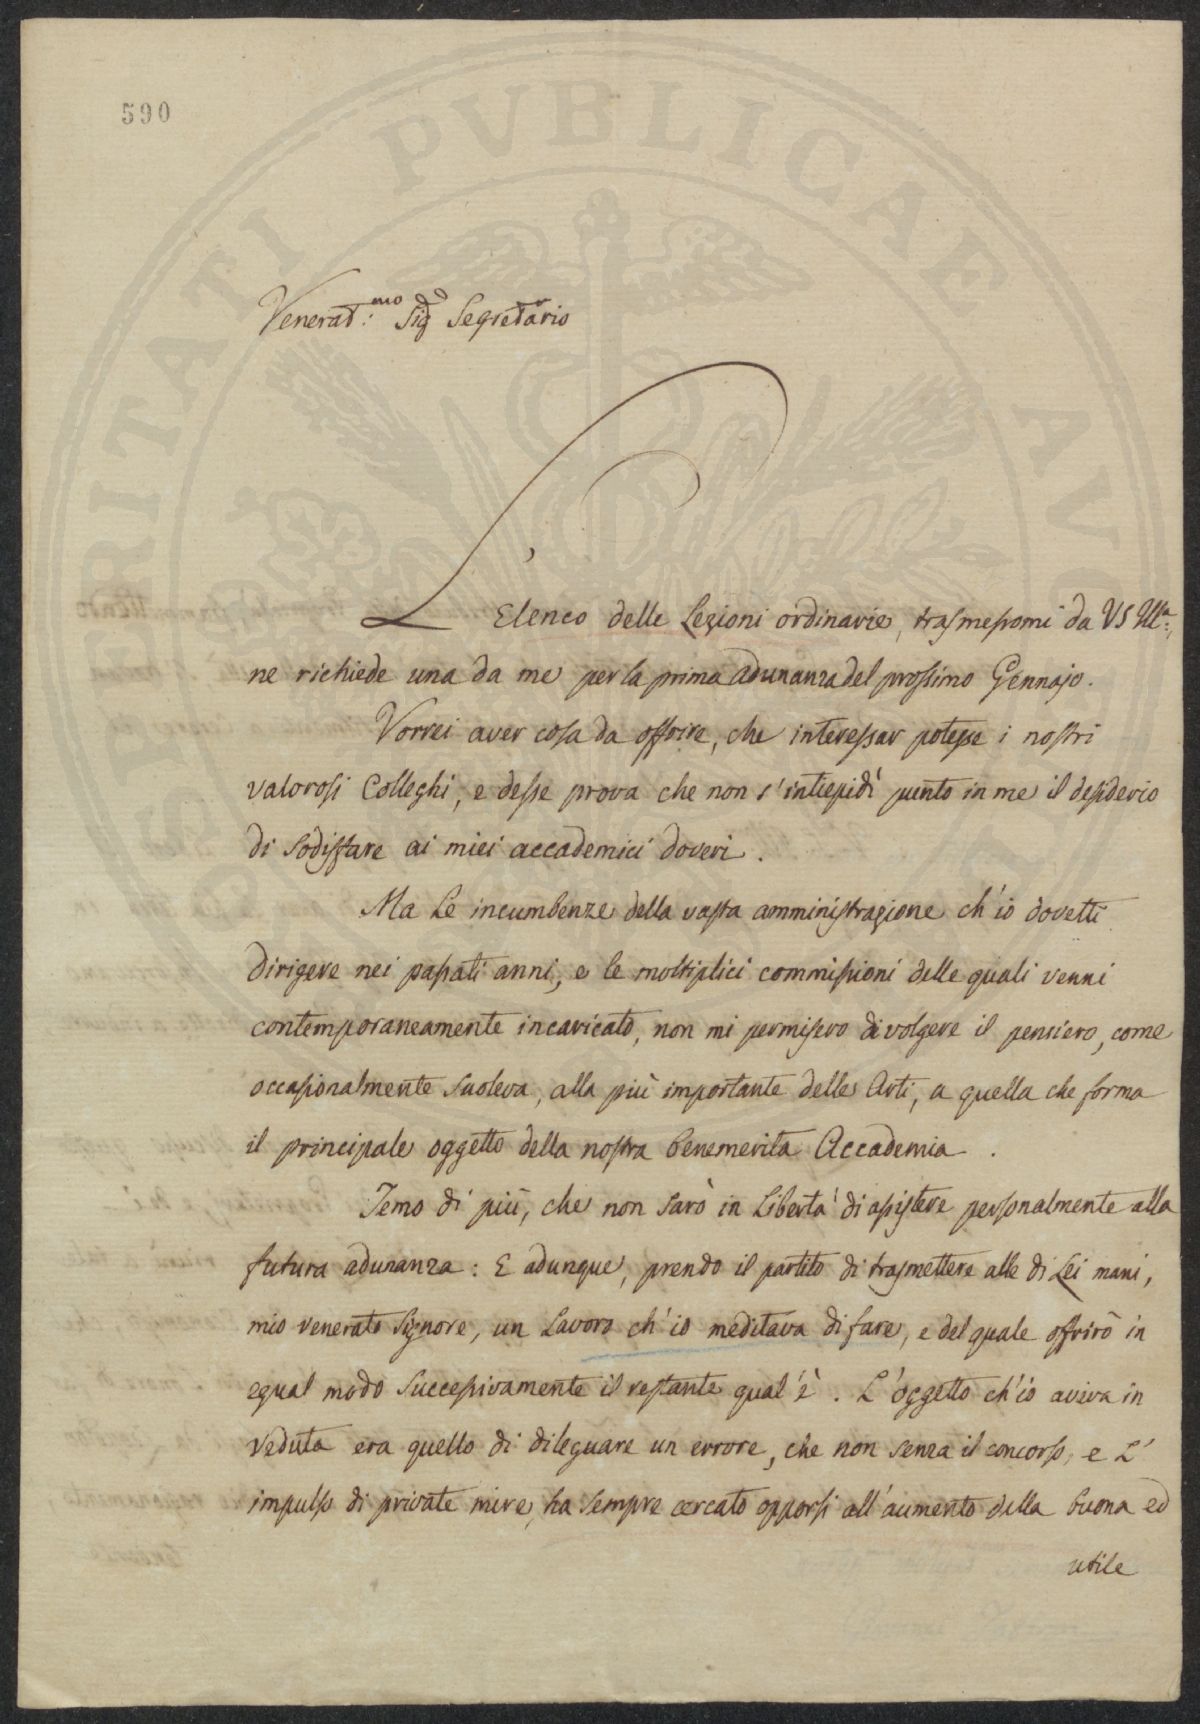 590
Venerad:mo Sig Segretario
L'Elenco delle Lezioni ordinarie, trasmessomi da VS Illa:,
ne richiede una da me per la prima adunanza del prossimo Gennajo.
Vorrei aver cosa da offrire, che interessar potesse i nostri
valorosi Colleghi, e desse prova che non s'intiepidì punto in me il desiderio
di sodisfare ai miei accademici doveri.
Ma le incumbenze della vasta amministrazione ch'io dovetti
dirigere nei passati anni, e le moltiplici commissioni delle quali venni
contemporaneamente incaricato, non mi permisero di volgere il pensiero, come
occasionalmente suoleva, alla più importante delle Arti, a quella che forma
il principale oggetto della nostra benemerita Accademia.
Temo di più, che non sarò in libertà di assistere personalmente alla
futura adunanza: E adunque, prendo il partito di trasmettere alle di Lei mani,
mio venerato Signore, un Lavoro ch'io meditava di fare, e del quale offrirò in
egual modo successivamente il restante qual'è. L'oggetto ch'io aveva in
veduta era quello di dileguare un errore, che non senza il concorso, e l'
impulso di private mire, ha sempre cercato opporsi all'aumento della buona ed
utile
PVBLICAE